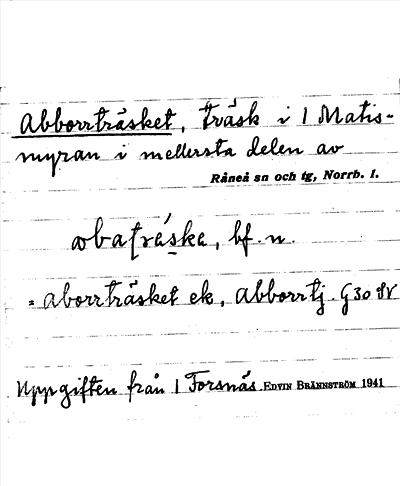 Abborrträsket, träsk i 1 Matis-
myran i mellersta delen av
Råneå sn och tg, Norrb. l.
abatrᶏske, bf. n.
= aborrträsket ek, Abborrtj. G30 SV
Uppgiften från 1 Forsnäs. EDVIN BRÄNNSTRÖM 1941